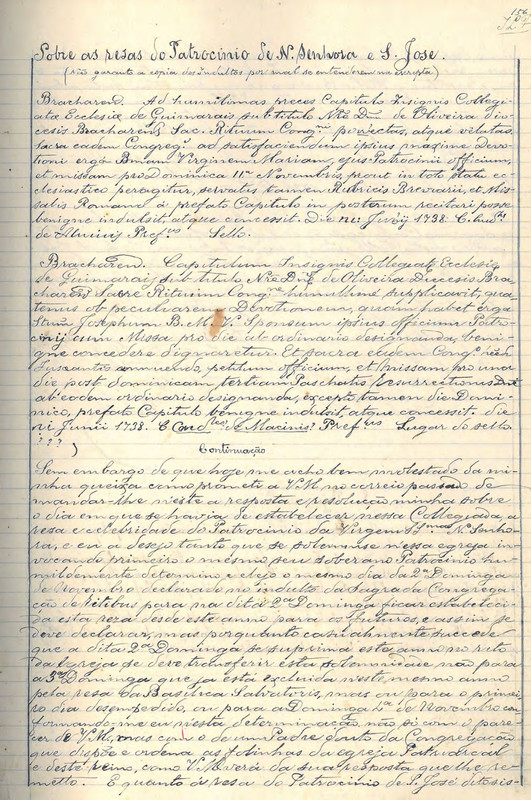 156
Sobre as resas do Patrocinio de N. Senhora e S. José.
(não garanto a copia dos indultos por mal se entenderem na escripta)
Bracharen. Ad humilimas preces Capituli Insignis Collegi-
atæ Ecclesiæ de Guimarais sub titulo Nræ Dnæ de Oliveira dio-
cesis Bracharens Sac. Rituum Congne porrectas, atque
Sacra eadem Congreg. ad satisfaciendum ipsius maxime Devo-
tioni ergà Bmam Virginem Mariam, ejus Patrocinii officium,
et missam pro Dominica 11ª Novembris, prout in toto statu ec-
clesiastico peragitur, servatis tamen Rubricis Breviarii, et Mis-
salis Romano à prefato Capitulo in posterum recitari posse
benigne indulsit, atque concessit. Die Junij 1738.
de Prefus Sello.
Bracharen. Capitulum Insignis Collegiatæ Ecclesiæ
de Guimarais sub titulo Nræ Dnæ de Oliveira Diocesis Bra-
charens Sacræ Rituum Congne humilime supplicavit, qua-
tenus ob peculiarem Devotionem, quam habet ergà
Stum Josephum B. M. V. Sponsum ipsius officium Patro-
cinij cum Missa pro die ab ordinario designanda, beni-
gne concedere dignaretur. Et sacra eadem Congne
annuendo, petitum officium, et missam pro una
die post dominicam tertiam Paschatis Resurrectionis Dni
ab eodem ordinario designanda, excepto tamen die Domi-
nico, prefato Capitulo benigne indulsit atque concessit. die
vi Junii 1738. C Condus de Macinis? Prefus Lugar do sello
? ? ? )
Continuação
Sem embargo de que hoje me acho bem molestado da mi-
nha queixa como prometi a V.M. no correio passado de
mandar-lhe n'este a resposta e resolução minha sobre
o dia em que se havia de estabelecer nessa Collegiada, a
resa e celebridade do Patrocinio da Virgem Sma N. Senho-
ra, e eu a desejo tanto que se solemnise nessa egreja in-
vocando primeiro o mesmo seu soberano Patrocinio hu-
mildemente determino e elejo o mesmo dia da 2ª Dominga
de Novembro declarado no indulto da Sagrada Congrega-
ção de Retibus para na dita 2ª Dominga ficar estabeleci-
da esta reza desde este anno para os futuros, e assim se
deve declarar, mas porquanto casualmente succede
que a dita 2ª Dominga se suprima este anno no rito
da Egreja se deve transferir esta solemnidade não para
a 3ª Dominga que já está excluida neste mesmo anno
pela resa da Basilica Salvatoris, mas ou para o primei-
ro dia desempedido, ou para a Dominga 4ª de Novembro con-
formando-me eu n'esta determinação, não só com o pare-
cer de V.M. mas com o de um Padre douto da Congregação
que dispõe e ordena as folinhas da egreja Patriarcal
e deste reino, como V.M. verá da sua resposta que lhe re-
metto. E quanto á resa do Patrocinio de S. José